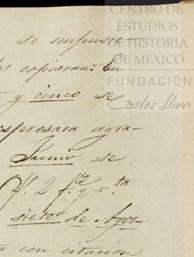 CENTRO DE
ESTUDIOS
DE HISTORIA
DE MEXICO
FUNDACIÓN
Carlos Slim
se impuso
copiaran: En
y cinco se
espresara agra-
Junio se
siete de Agos-
con citacion